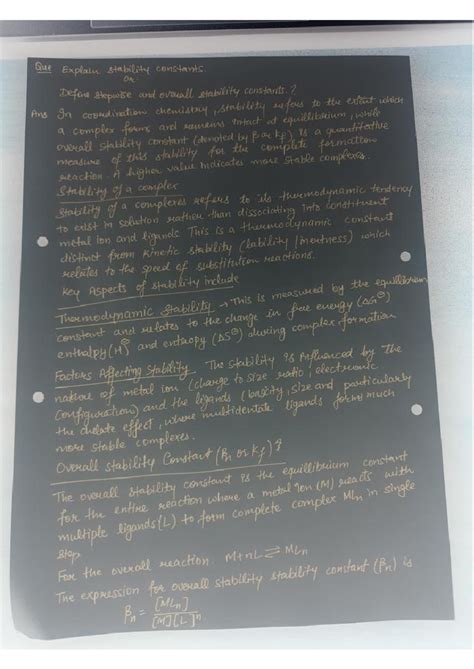 Que Explain stability constants.
Or
Define stepwise and overall stability constants.?
Ans In coordination chemistry, stability refers to the extent which
a complex forms and remains intact at equillibrium, while
overall stability constant (denoted by β or Kf), is a quantitative
measure of this stability for the complete formation
reaction. A higher value indicates more stable complexes.
Stability of a complex
Stability of a complexes refers to its thermodynamic tendency
to exist in solution rather than dissociating into constituent
metal ion and ligands. This is a thermodynamic constant
distinct from kinetic stability (lability/inertness) which
relates to the speed of substitution reactions.
Key Aspects of stability include
Thermodynamic Stability → This is measured by the equillibrium
constant and relates to the change in free energy (ΔG⊖)
enthalpy (H⊖) and entropy (ΔS⊖) during complex formation
Factors Affecting Stability - The stability is influenced by the
nature of metal ion (charge to size ratio, electronic
configuration) and the ligands (basity, size and particularly
the chelate effect, where multidentate ligands forms much
more stable complexes.
Overall Stability Constant (βn or Kf)?
The overall stability constant is the equillibrium constant
for the entire reaction where a metal ion (M) reacts with
multiple ligands (L) to form complete complex MLn in single
step.
For the overall reaction M+nL ⇌ MLn
The expression for overall stability stability constant (βn) is
βn = [MLn] / [M][L]^n